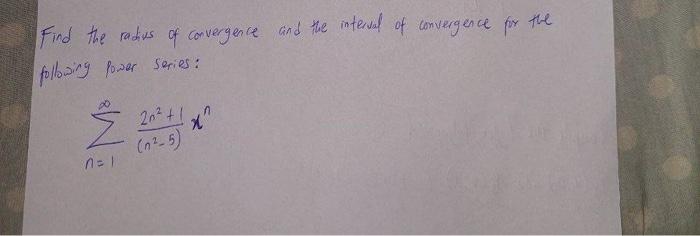 Find the radius of convergence and the interval of convergence for the
following Power Series:
∞
∑ 2n² + 1 / (n² - 5) xⁿ
n = 1